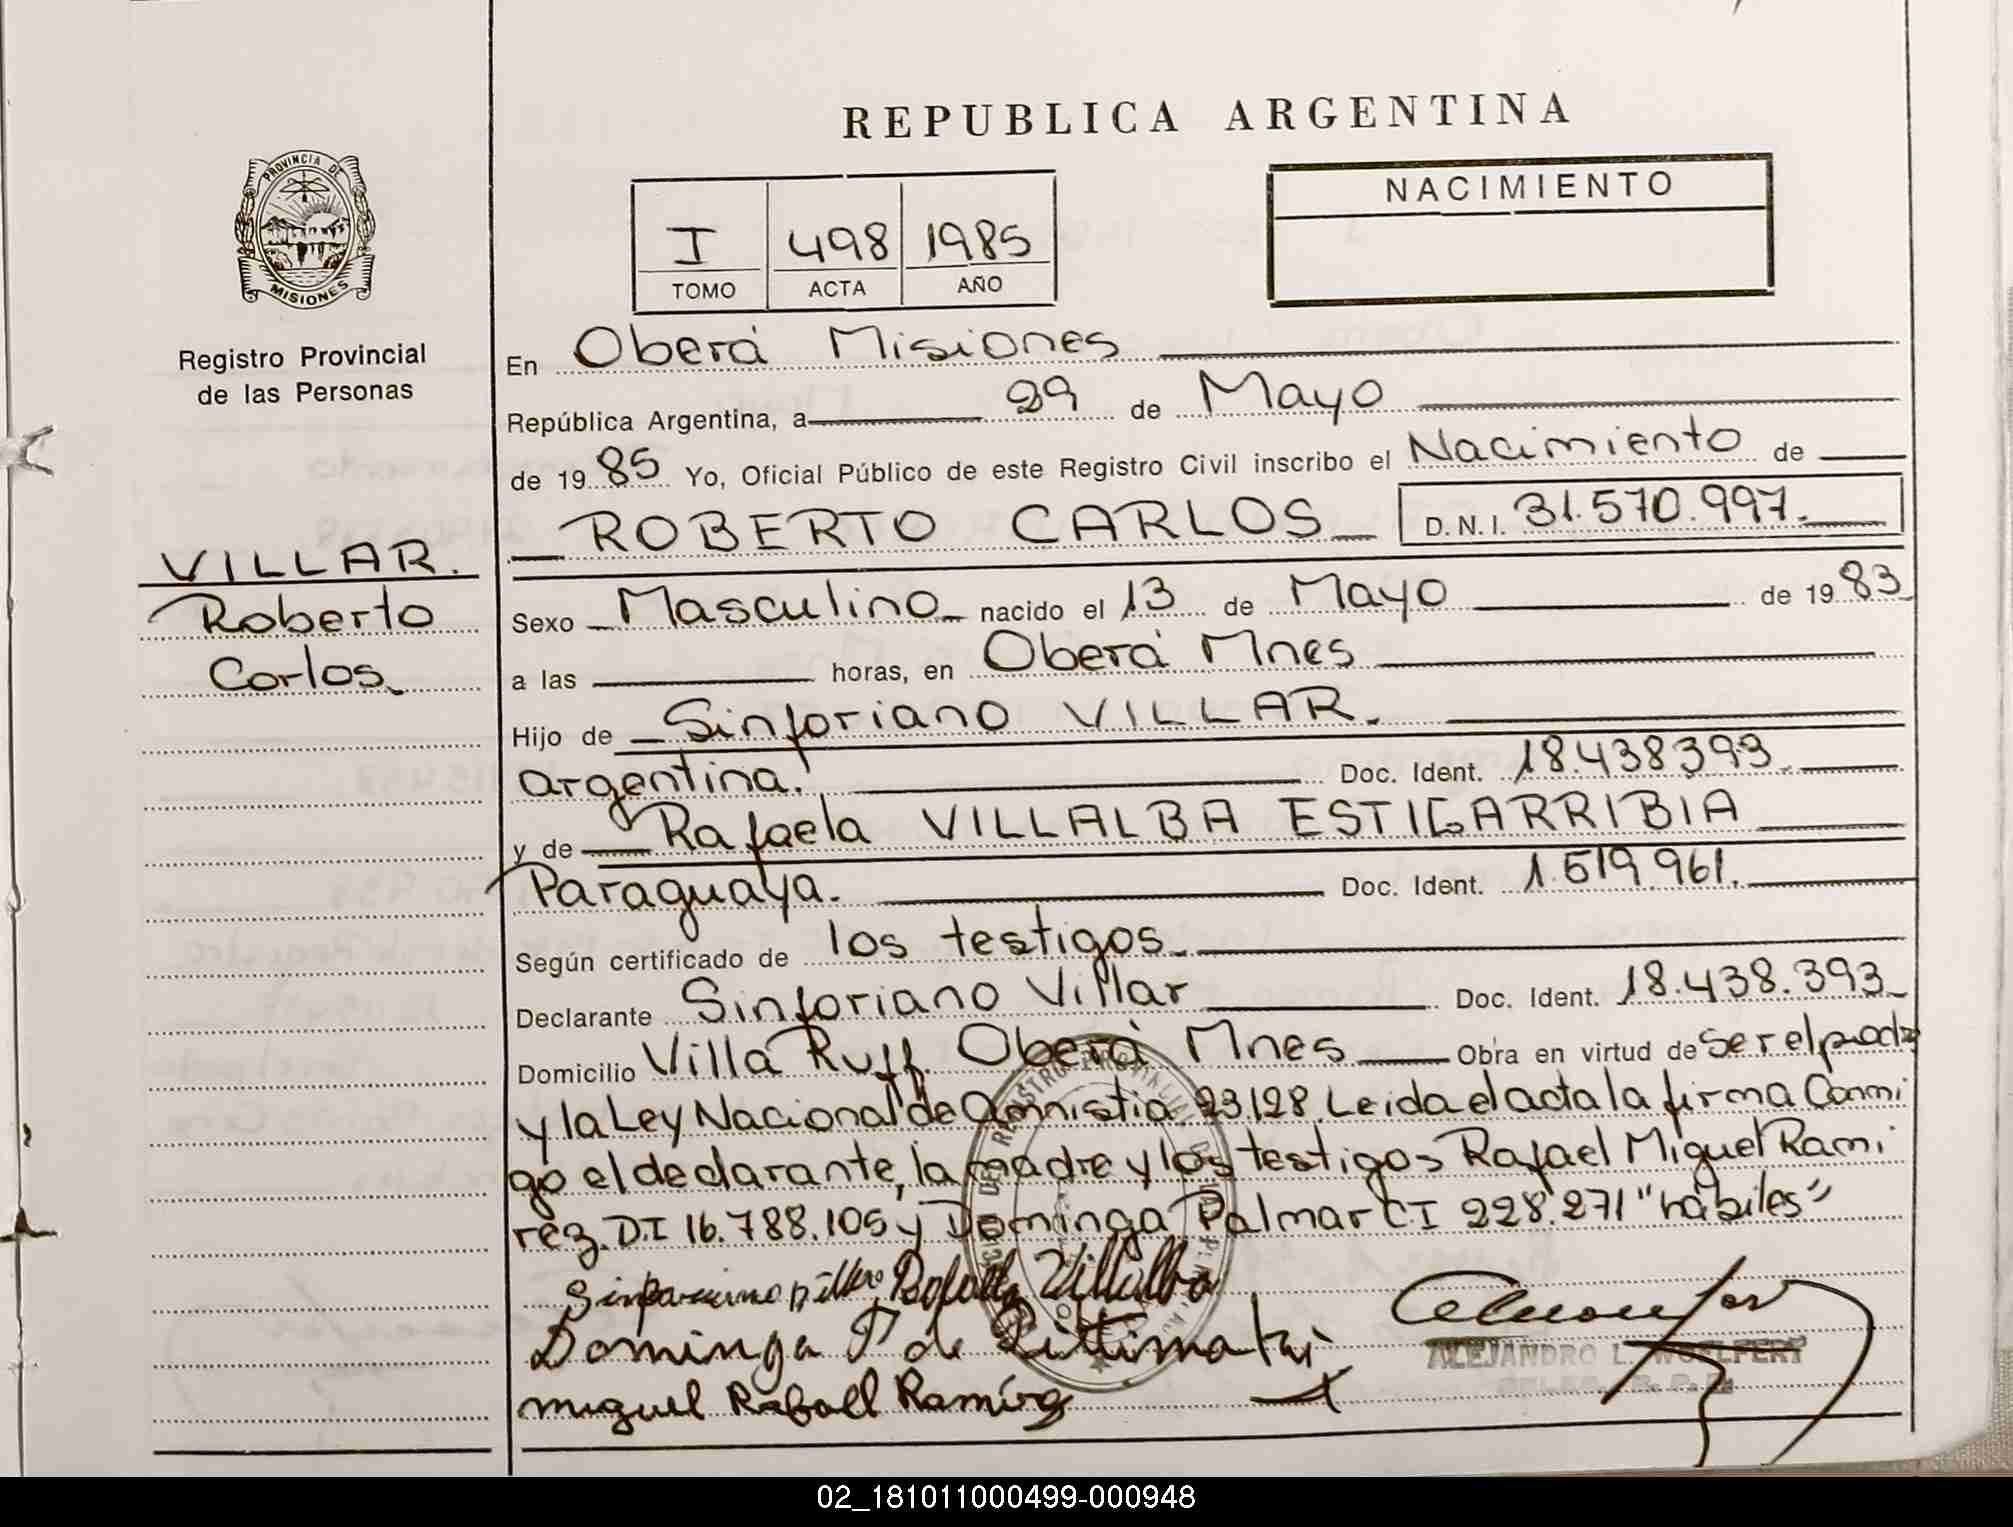 REPUBLICA ARGENTINA
PROVINCIA DE
MISIONES
Registro Provincial
de las Personas
I 498 1985
TOMO ACTA AÑO
NACIMIENTO
En Oberá Misiones
República Argentina, a 29 de Mayo
de 19 85 Yo, Oficial Público de este Registro Civil inscribo el Nacimiento de
ROBERTO CARLOS D.N.I. 31.570.997.
VILLAR.
Roberto
Carlos
Sexo Masculino nacido el 13 de Mayo de 19 83
a las horas, en Oberá Mnes
Hijo de Sinforiano VILLAR.
argentina. Doc. Ident. 18.438393
y de Rafaela VILLALBA ESTIGARRIBIA
Paraguaya. Doc. Ident. 1.519.961.
Según certificado de los testigos
Declarante Sinforiano Villar Doc. Ident. 18.438.393
Domicilio Villa Ruff. Oberá Mnes Obra en virtud de ser el padre
y la Ley Nacional de amnistia 23.128. Leida el acta la firma Conmi
go el declarante, la madre y los testigos Rafael Miguel Rami
rez. D.I 16.788.105 y Dominga Palmar CI 228.271 "hábiles"
Villalba
Dominga P de
Miguel Rafael Ramirez
ALEJANDRO L. WOELFERT
02_181011000499-000948